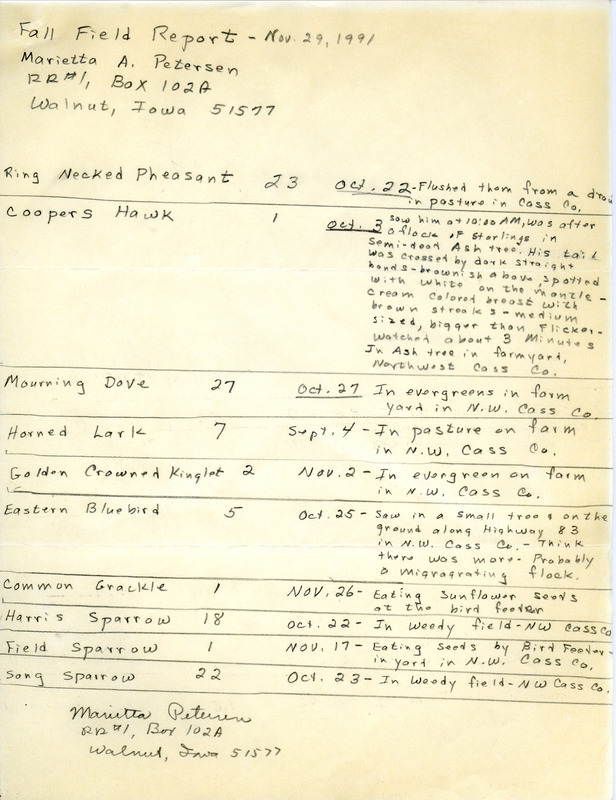 Fall Field Report - Nov. 29, 1991
Marietta A. Petersen
RR#1, Box 102A
Walnut, Iowa 51577
Ring Necked Pheasant 23 Oct. 22 - Flushed them from a draw
in pasture in Cass Co.
Coopers Hawk 1 Oct. 3 saw him at 10:00 AM, was after
a flock of Starlings in
Semi-dead Ash tree. His tail
was crossed by dark straight
bands - brownish above, spotted
with white on the mantle -
cream colored breast with
brown streaks - medium
sized, bigger than Flicker -
watched about 3 Minutes
In Ash tree in farmyard,
Northwest Cass Co.
Mourning Dove 27 Oct. 27 In evergreens in farm
yard in N.W. Cass Co.
Horned Lark 7 Sept. 4 - In pasture on farm
in N.W. Cass Co.
Golden Crowned Kinglet 2 Nov. 2 - In evergreen on farm
in N.W. Cass Co.
Eastern Bluebird 5 Oct. 25 - Saw in a small tree & on the
ground along Highway 83
in N.W. Cass Co. - Think
there was more - Probably
a migragrating flock.
Common Grackle 1 Nov. 26 - Eating Sunflower seeds
at the bird feeder
Harris Sparrow 18 Oct. 22 - In weedy field - NW Cass Co
Field Sparrow 1 Nov. 17 - Eating seeds by Bird Feeder -
in yard in N.W. Cass Co,
Song Sparrow 22 Oct. 23 - In Weedy field - NW Cass Co.
Marietta Petersen
RR#1, Box 102A
Walnut, Iowa 51577